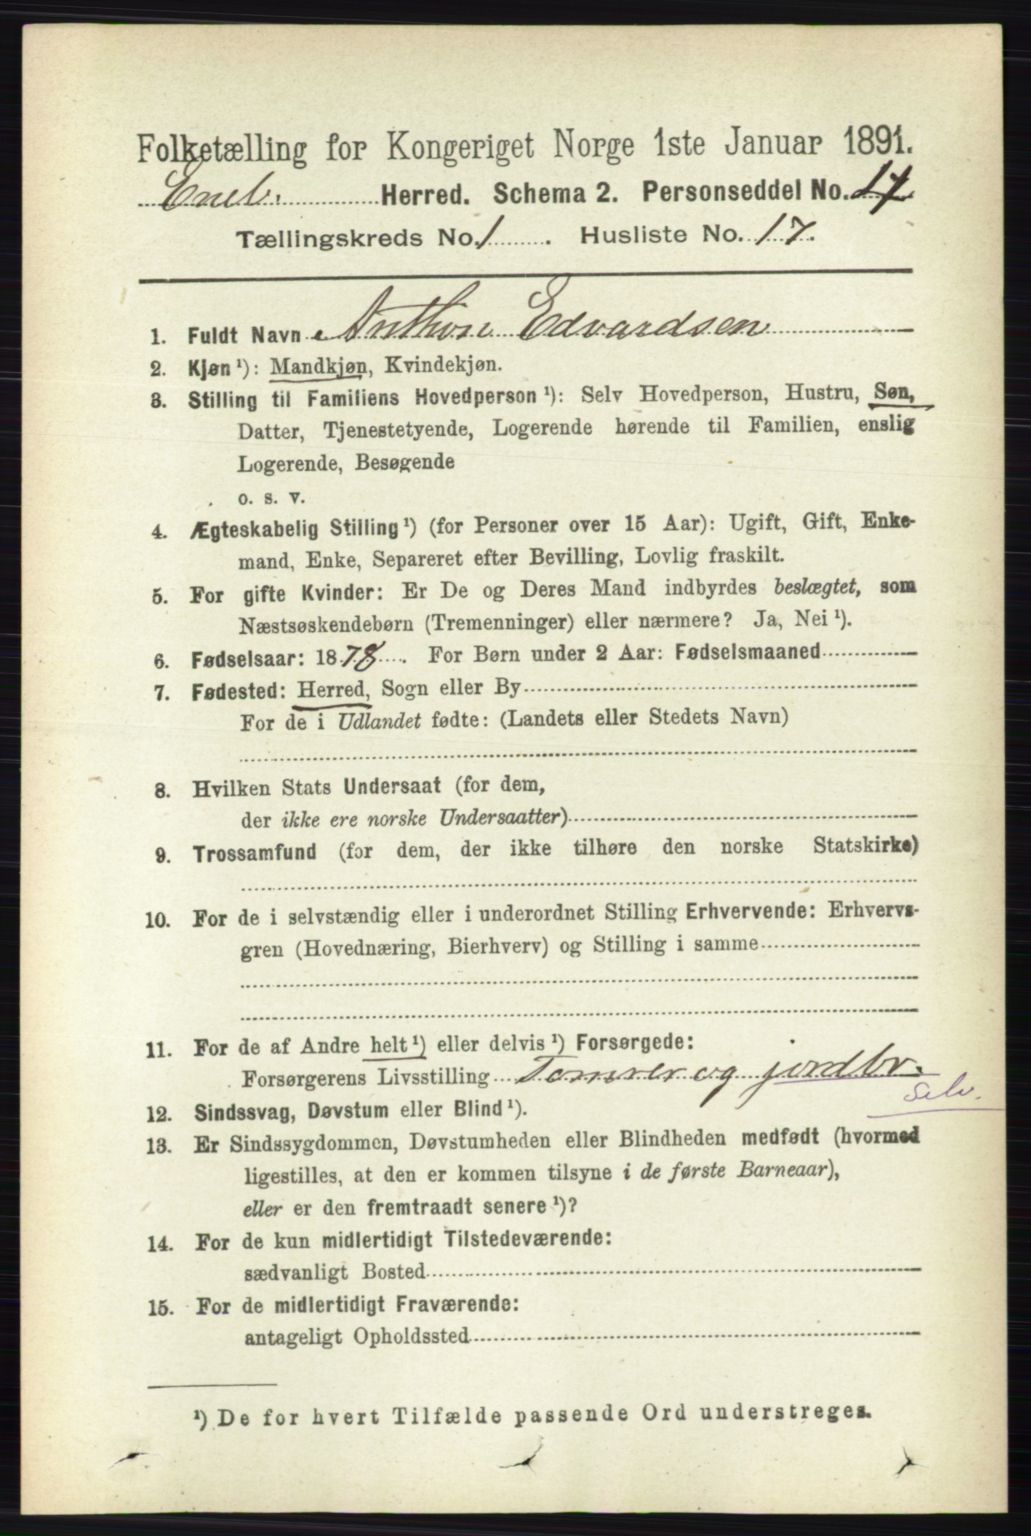 Folketælling for Kongeriget Norge 1ste Januar 1891.
Eneb. Herred. Schema 2. Personseddel No. 17.
Tællingskreds No. 1. Husliste No. 17.
1. Fuldt Navn Anthon Edvardsen
2. Kjøn ¹): Mandkjøn, Kvindekjøn.
3. Stilling til Familiens Hovedperson ¹): Selv Hovedperson, Hustru, Søn,
Datter, Tjenestetyende, Logerende hørende til Familien, enslig
Logerende, Besøgende
o. s. v.
4. Ægteskabelig Stilling ¹) (for Personer over 15 Aar): Ugift, Gift, Enke-
mand, Enke, Separeret efter Bevilling, Lovlig fraskilt.
5. For gifte Kvinder: Er De og Deres Mand indbyrdes beslægtet, som
Næstsøskendebørn (Tremenninger) eller nærmere? Ja, Nei ¹).
6. Fødselsaar: 1878. For Børn under 2 Aar: Fødselsmaaned
7. Fødested: Herred, Sogn eller By
For de i Udlandet fødte: (Landets eller Stedets Navn)
8. Hvilken Stats Undersaat (for dem,
der ikke ere norske Undersaatter)
9. Trossamfund (for dem, der ikke tilhøre den norske Statskirke)
10. For de i selvstændig eller i underordnet Stilling Erhvervende: Erhvervs-
gren (Hovednæring, Bierhverv) og Stilling i samme
11. For de af Andre helt ¹) eller delvis ¹) Forsørgede:
Forsørgerens Livsstilling Tømrer og jordbr.
Selv.
12. Sindssvag, Døvstum eller Blind ¹).
13. Er Sindssygdommen, Døvstumheden eller Blindheden medfødt (hvormed
ligestilles, at den er kommen tilsyne i de første Barneaar),
eller er den fremtraadt senere ¹)?
14. For de kun midlertidigt Tilstedeværende:
sædvanligt Bosted
15. For de midlertidigt Fraværende:
antageligt Opholdssted
¹) De for hvert Tilfælde passende Ord understreges.